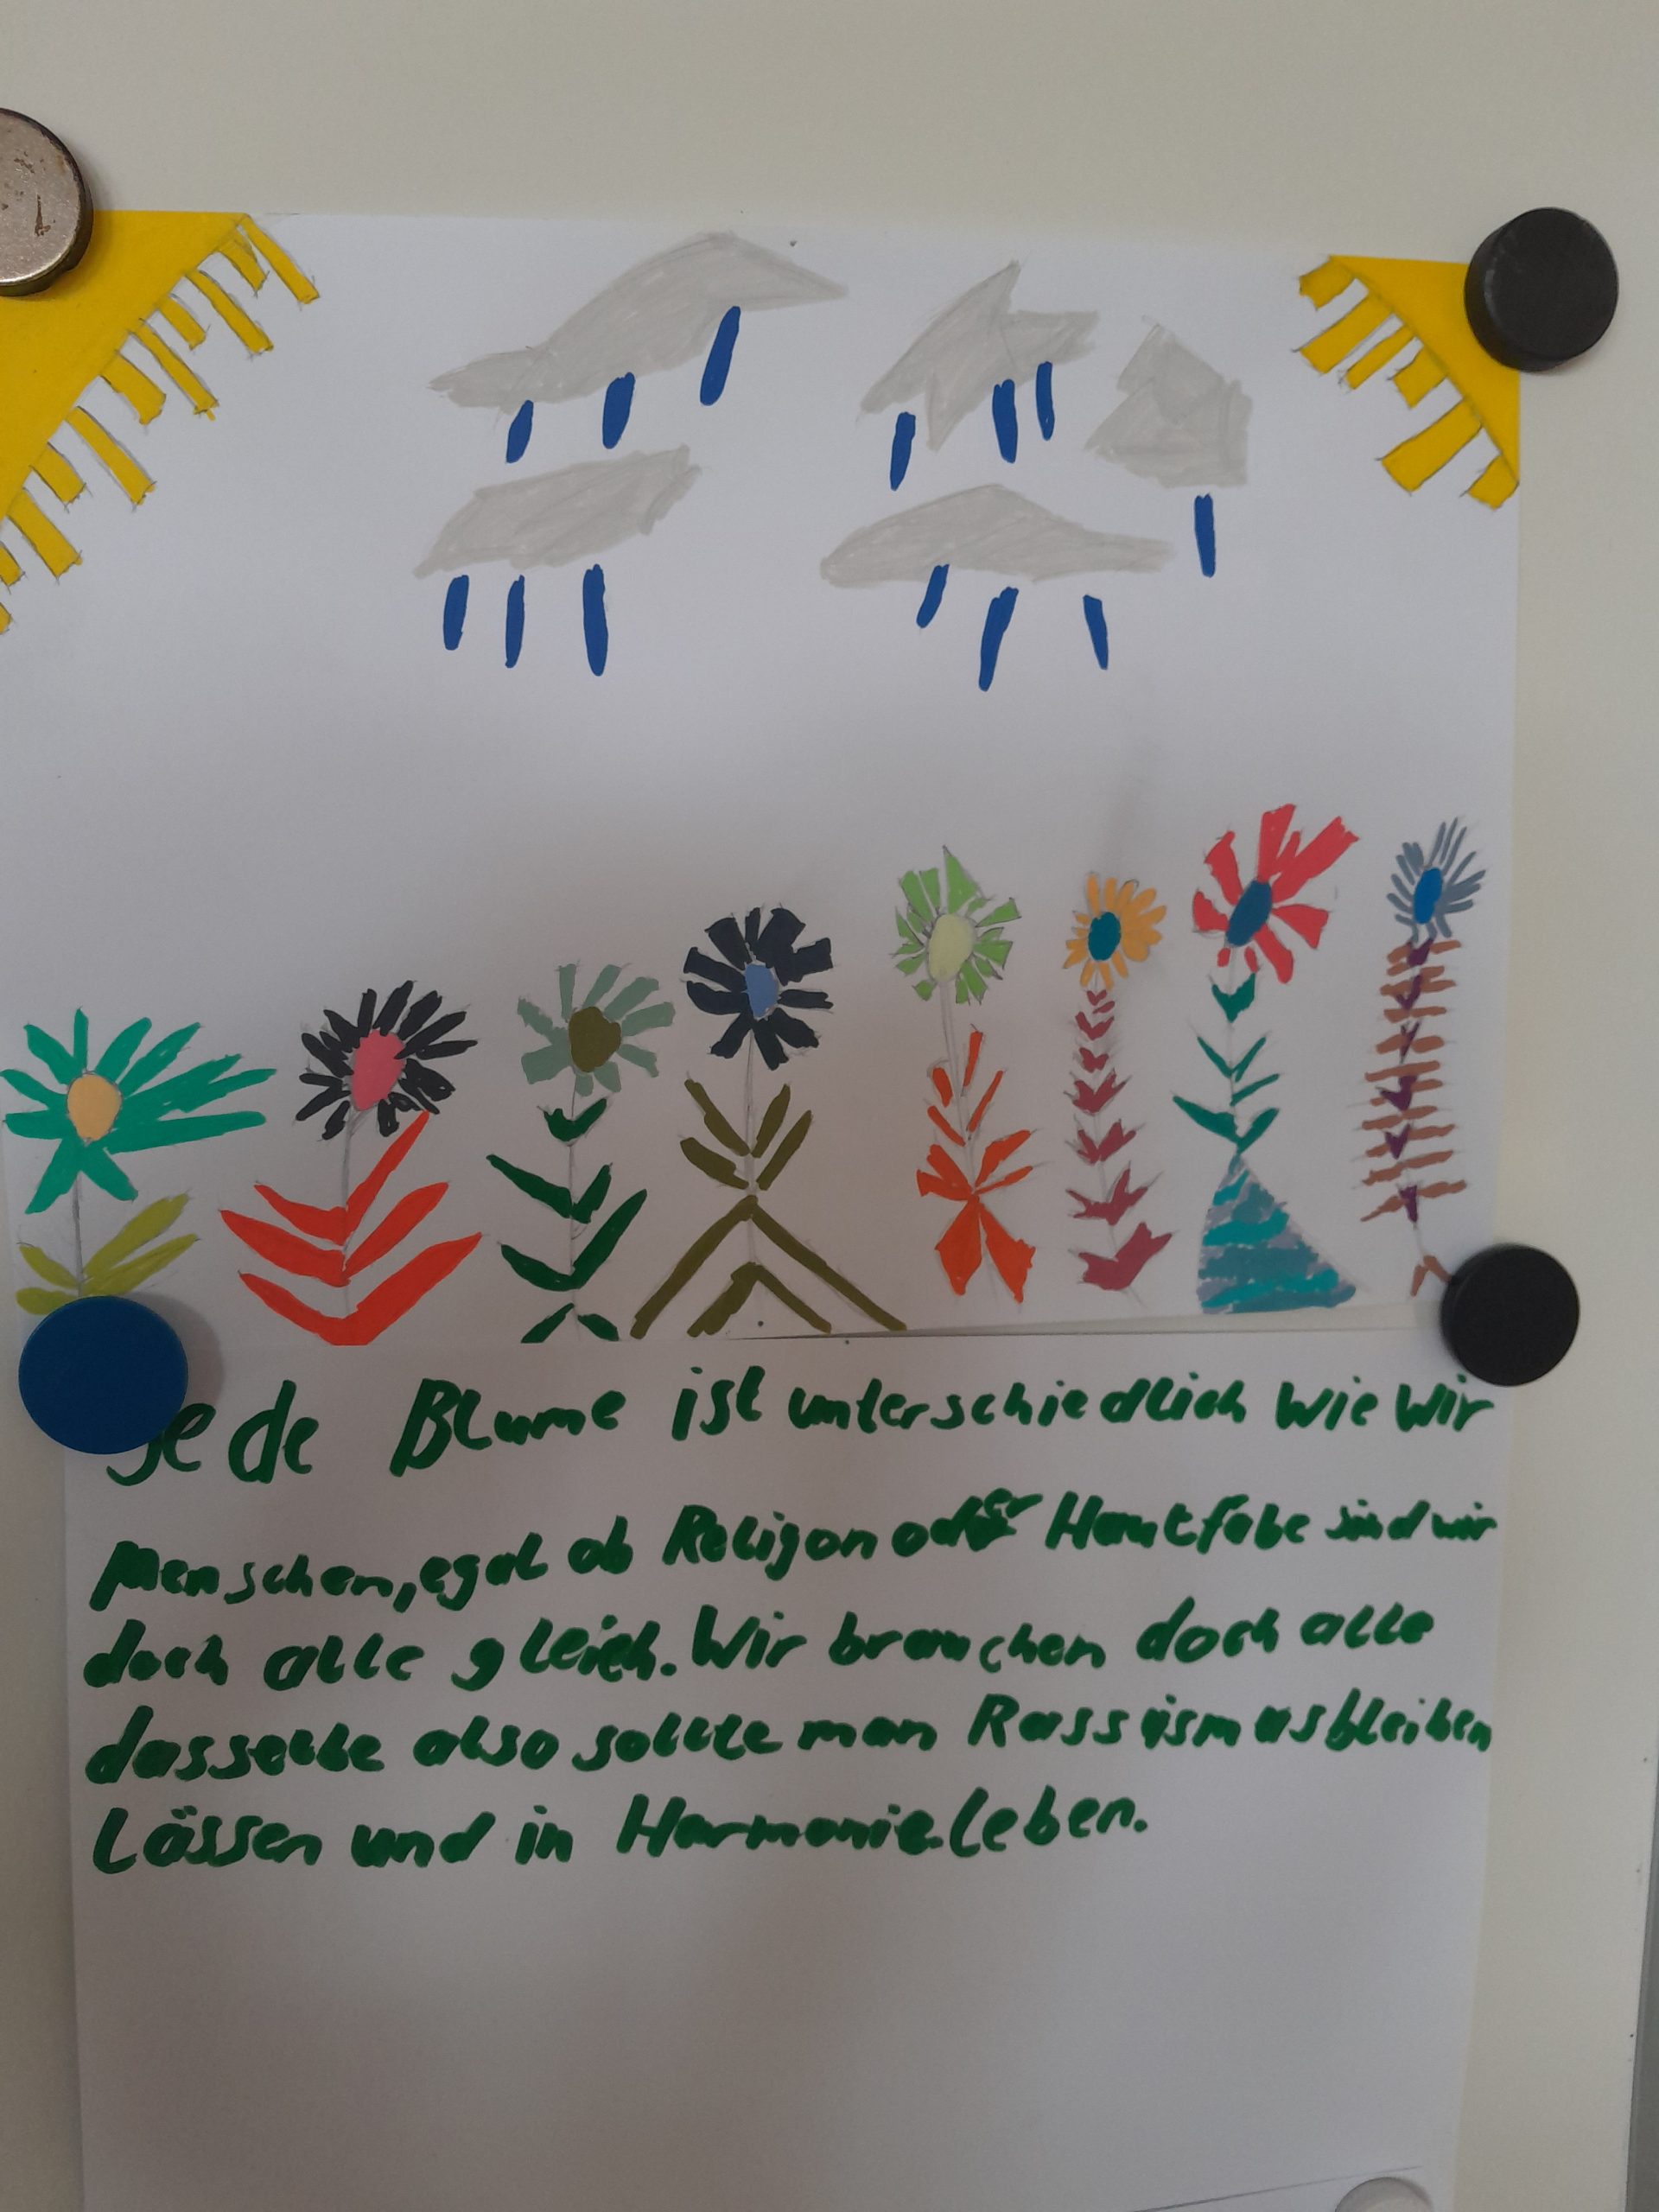 Jede Blume ist unterschiedlich wie wir
Menschen, egal ob Religon oder Hautfabe sind wir
doch alle gleich. Wir brauchen doch alle
dasselbe also sollte man Rassismus bleiben
Lässen und in Harmonie leben.